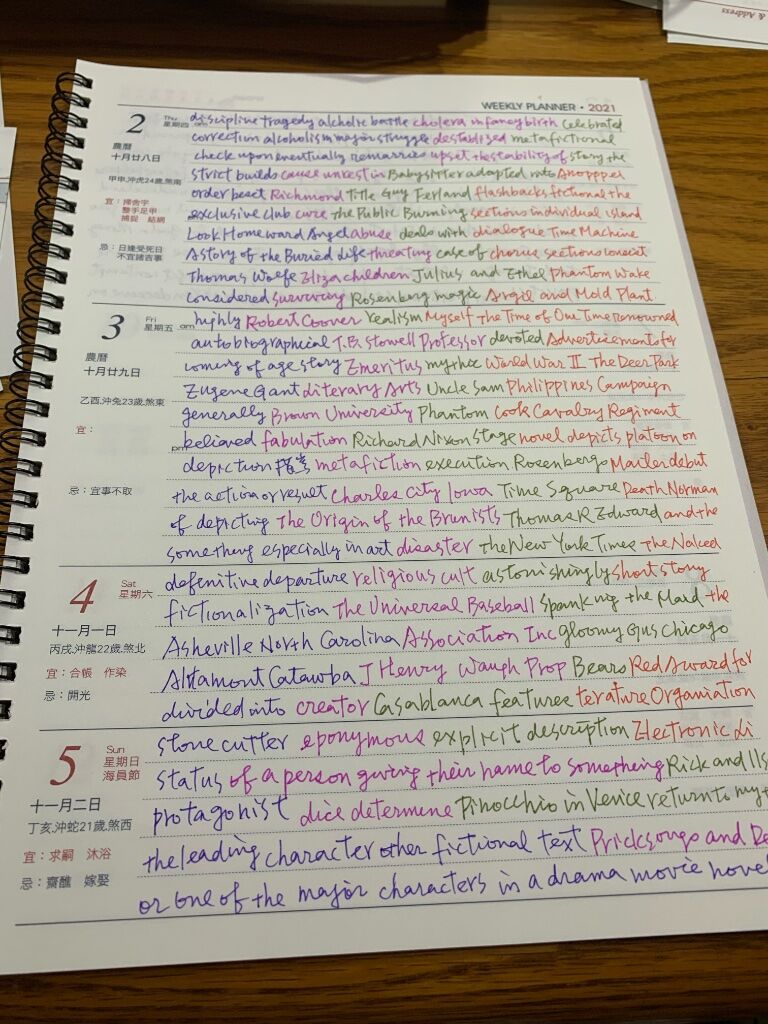 & Address
WEEKLY PLANNER • 2021
2 Thu 星期四 am
農曆
十月廿八日
甲申,沖虎24歲,煞南
宜：掃舍宇
整手足甲
捕捉 結網
忌：日逢受死日
不宜諸吉事
discipline tragedy alcholic battle cholera infancy birth Celebrated
correction alcoholism major struggle destablized metafictional
check upon eventually remarried upset the stability of story the
strict builds cause unrest in Babysitter adapted into
order beset Richmond Title Guy Ferland flashbacks fictional the
exclusive club cure the Public Burning sections individual island
Look Homeward Angel abuse deals with dialogue Time Machine
A story of the Buried life threating case of chorus sections consist
Thomas Wolfe Eliza children Julius and Ethel Phantom Wake
considered surviving Rosenberg magic Argil and Mold Plant
3 Fri 星期五 am
農曆
十月廿九日
乙酉,沖兔23歲,煞東
宜：
pm
忌：宜事不取
highly Robert Coover realism Myself The Time of Our Time renowned
autobiographical T.B. Stowell Professor devoted Advertisements for
coming of age story Emeritus mythic World War II The Deer Park
Eugene Gant literary Arts Uncle Sam Philippines Campaign
generally Brown University Phantom Cook Cavalry Regiment
believed fabulation Richard Nixon stage novel depicts platoon on
depiction metafiction execution Rosenbergs Mailer debut
the action or result Charles City Iowa Time Square Death Norman
of depicting The Origin of the Brunists Thomas R Edward and the
something especially in art disaster the New York Times The Naked
4 Sat 星期六
十一月一日
丙戌,沖龍22歲,煞北
宜：合帳 作染
忌：開光
defenitive departure religious cult astonishingly short story
fictionalization The Universal Baseball Spanking the Maid the
Asheville North Carolina Association Inc gloomy Gus Chicago
Altamont Catawba J Henry Waugh Prop Bears Red Award for
divided into creator Casablanca features terature Organiation
5 Sun 星期日
海員節
十一月二日
丁亥,沖蛇21歲,煞西
宜：求嗣 沐浴
忌：齋醮 嫁娶
stone cutter eponymous explicit description Electronic li
status of a person giving their name to something Rick and Ils
protagonist dice determine Pinocchio in Venice return to my
the leading character other fictional text Pricksongs and De
or one of the major characters in a drama movie novel